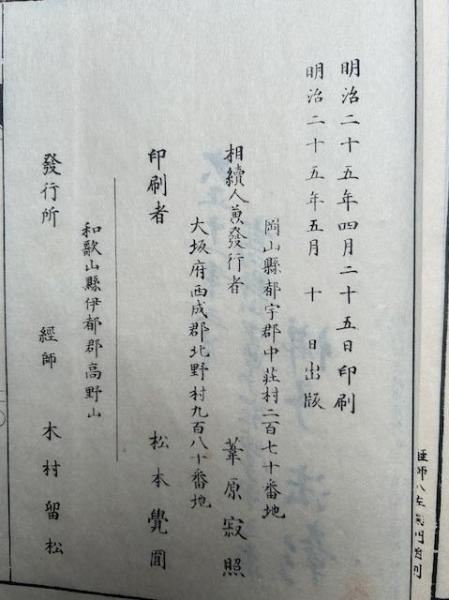 明治二十五年四月二十五日印刷
明治二十五年五月 十 日出版
岡山縣都宇郡中莊村二百七十番地
相續人兼發行者 葦原寂照
大坂府西成郡北野村九百八十番地
印刷者 松本覺圓
和歌山縣伊都郡高野山
發行所 經師 木村留松